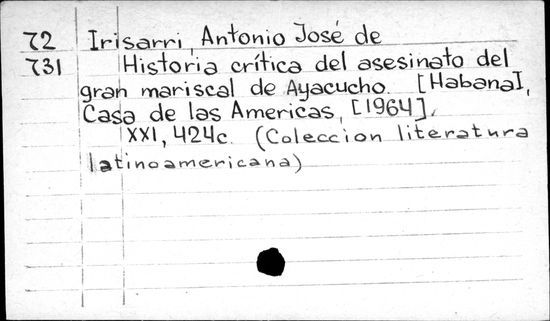 72 Irisarri, Antonio José de
731 Historia crítica del asesinato del
gran mariscal de Ayacucho. [Habana],
Casa de las Americas, [1964].
XXI, 424c. (Coleccion literatura
latinoamericana)